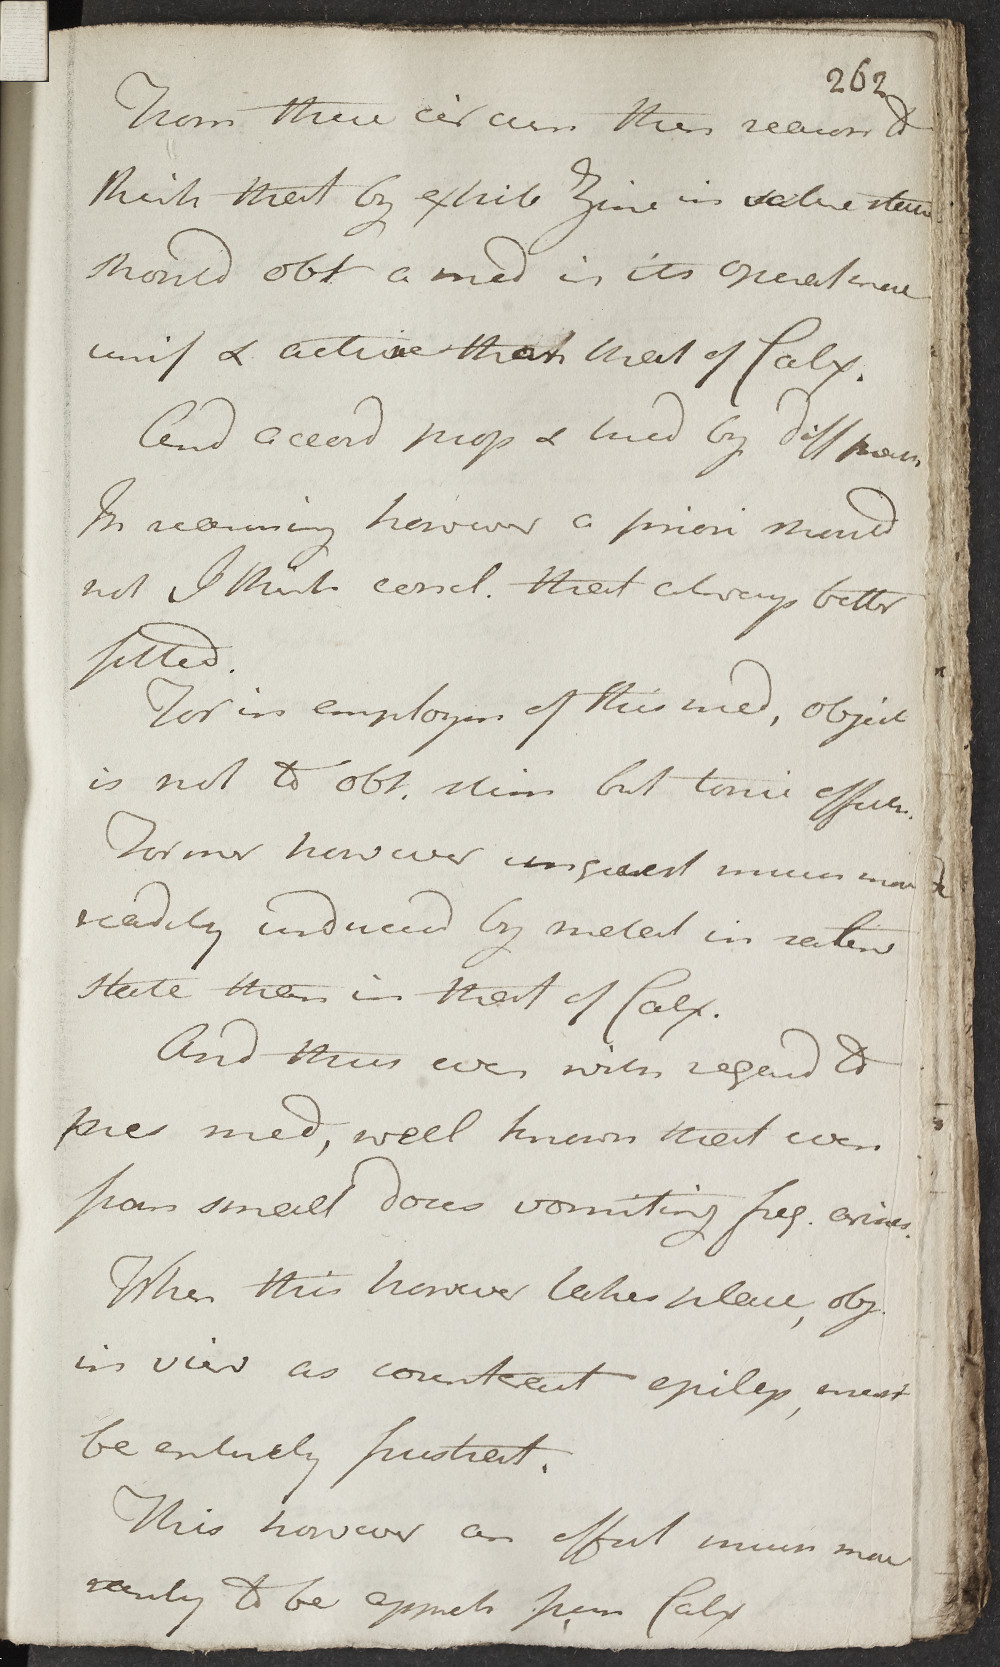 262
From these circum then reason to
think that by exhib Zinc in saline state
should obt a med in its operat more
unif & active than that of Calx.
And accord prop & tried by diff
In reasoning however a priori should
not I think concl. that always better
fitted.
For in employm of this med, object
is not to obt. stim but tonic effects.
Former however unquest much more
readily induced by metal in saline
state than in that of Calx.
And thus even with regard to
pres med, well known that even
from small doses vomiting freq. arises.
When this however takes place, obj.
in view as counteract epilep, must
be entirely frustrat.
This however an effect much more
rarely to be appreh from Calx